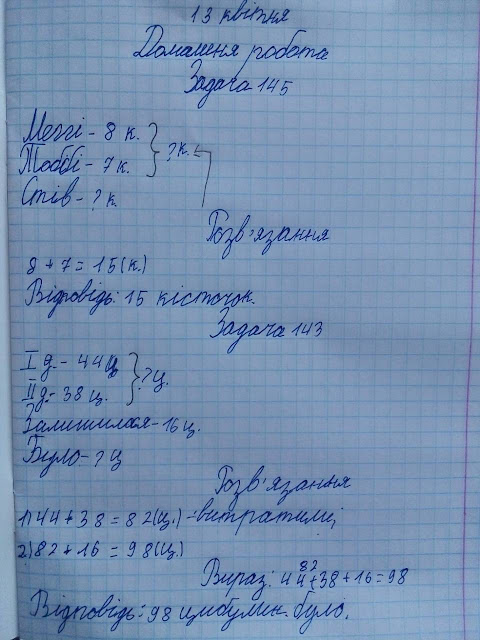 13 квітня
Домашня робота
Задача 145
Меггі - 8 к.
?к.
Тоббі - 7 к.
Стів - ? к.
Розв'язання
8 + 7 = 15 (к.)
Відповідь: 15 кісточок.
Задача 143
I д. - 44 ц
?ц.
II д. - 38 ц.
Залишилася - 16 ц.
Було - ? ц
Розв'язання
1) 44 + 38 = 82 (ц.) - витратили;
2) 82 + 16 = 98 (ц.)
82
Вираз: 44 + 38 + 16 = 98
Відповідь: 98 цибулин було.